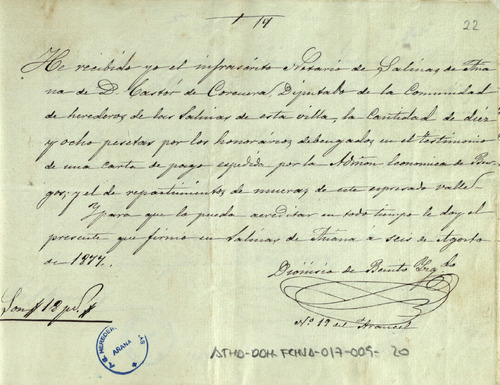 22
He recibido yo el infrascrito Notario de Salinas de Aña-
na de D. Castór de Corcuera, Diputado de la Comunidad
de herederos de las Salinas de esta villa, la Cantidad de diez
y ocho pesetas por los honorarios debengados en el testimonio
de una carta de pago espedida por la Admon Economica de Bur-
gos, y el de repartimientos de mueras, de este espresado valle.
Y para que lo pueda acreditar en todo tiempo le doy el
presente que firmo en Salinas de Añana á seis de Agosto
de 1877.
Dionisio de Benito
Son 18 ps.
Nº 19 del Arancel
ATHA-DOH-FCHVD-017-005-20
AÑANA